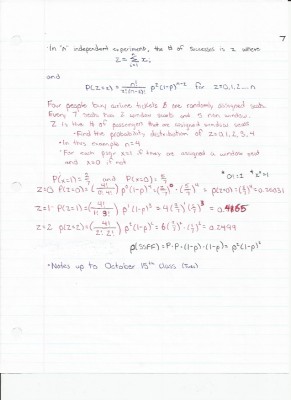 7
· In 'n' independent experiments, the # of successes is z where
Z = Σ xi
i=1
and
P(Z=z) = n! / z!(n-z)! p^z (1-p)^n-z for z=0,1,2...n
Four people buy airline tickets & are randomly assigned seats.
Every 7 seats has 2 window seats and 5 non window.
Z is the # of passengers that are assigned window seats
· Find the probability distribution of Z=0,1,2,3,4
· In this example n=4
· For each person x=1 if they are assigned a window seat
and x=0 if not
P(x=1)=2/7 and P(x=0)=5/7 *0!=1 *z^0=1
Z=0 P(Z=0)=(4!/0!4!) p^0(1-p)^4=(2/7)^0·(5/7)^4 = P(Z=0)=(5/7)^4=0.26031
Z=1 P(Z=1)=(4!/1!3!) p^1(1-p)^3=4(2/7)^1(5/7)^3=0.4165
Z=2 P(Z=2)=(4!/2!2!) p^2(1-p)^2=6(2/7)^2·(5/7)^2=0.2499
P(SSFF)=P·P·(1-p)·(1-p)=p^2(1-p)^2
· Notes up to October 15th class (Tues)